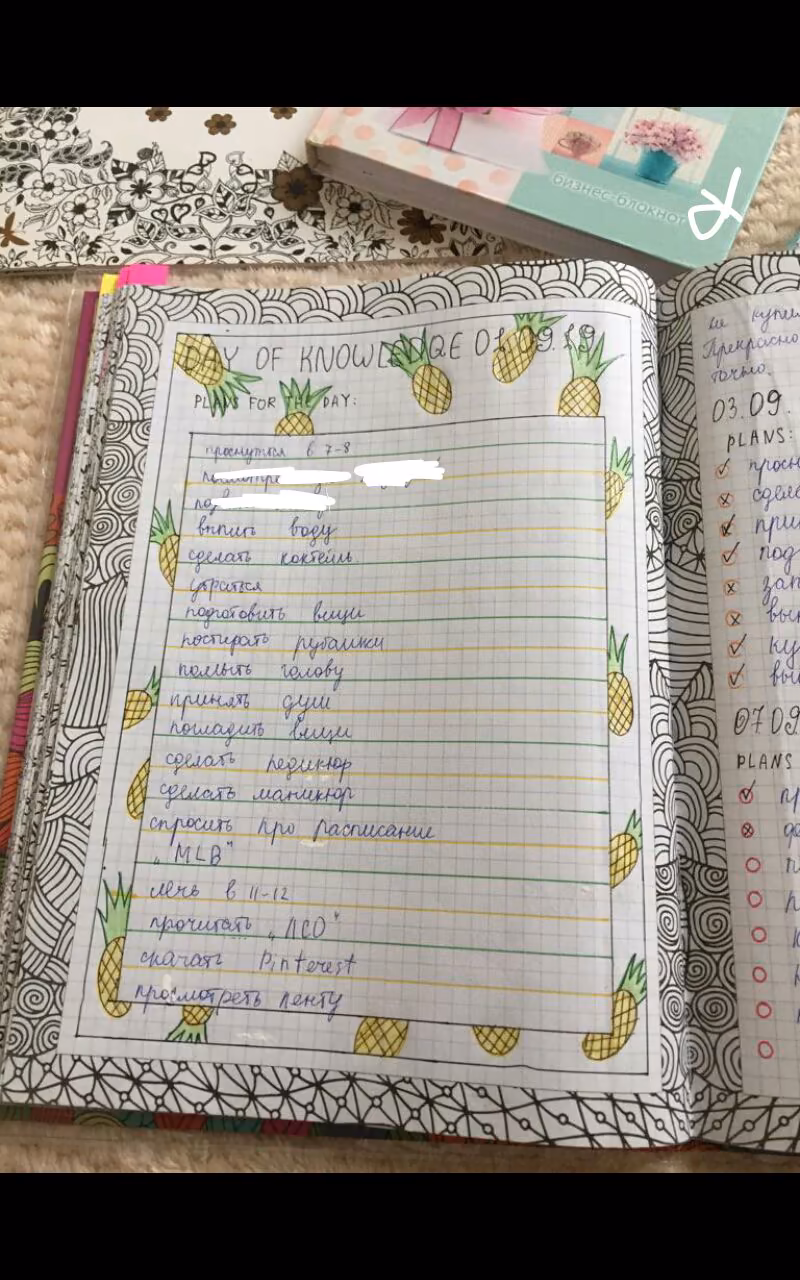 бизнес-блокнот
DAY OF KNOWLEDGE 01.09.19
PLANS FOR THE DAY:
проснуться в 7-8
выпить воду
сделать коктейль
убраться
подготовить вещи
постирать рубашки
помыть голову
принять душ
погладить вещи
сделать педикюр
сделать маникюр
спросить про расписание
„MLB"
лечь в 11-12
прочитать „ЛСО"
скачать Pinterest
просмотреть ленту
Прекрасно
точно.
03.09.
PLANS:
07 09
PLANS